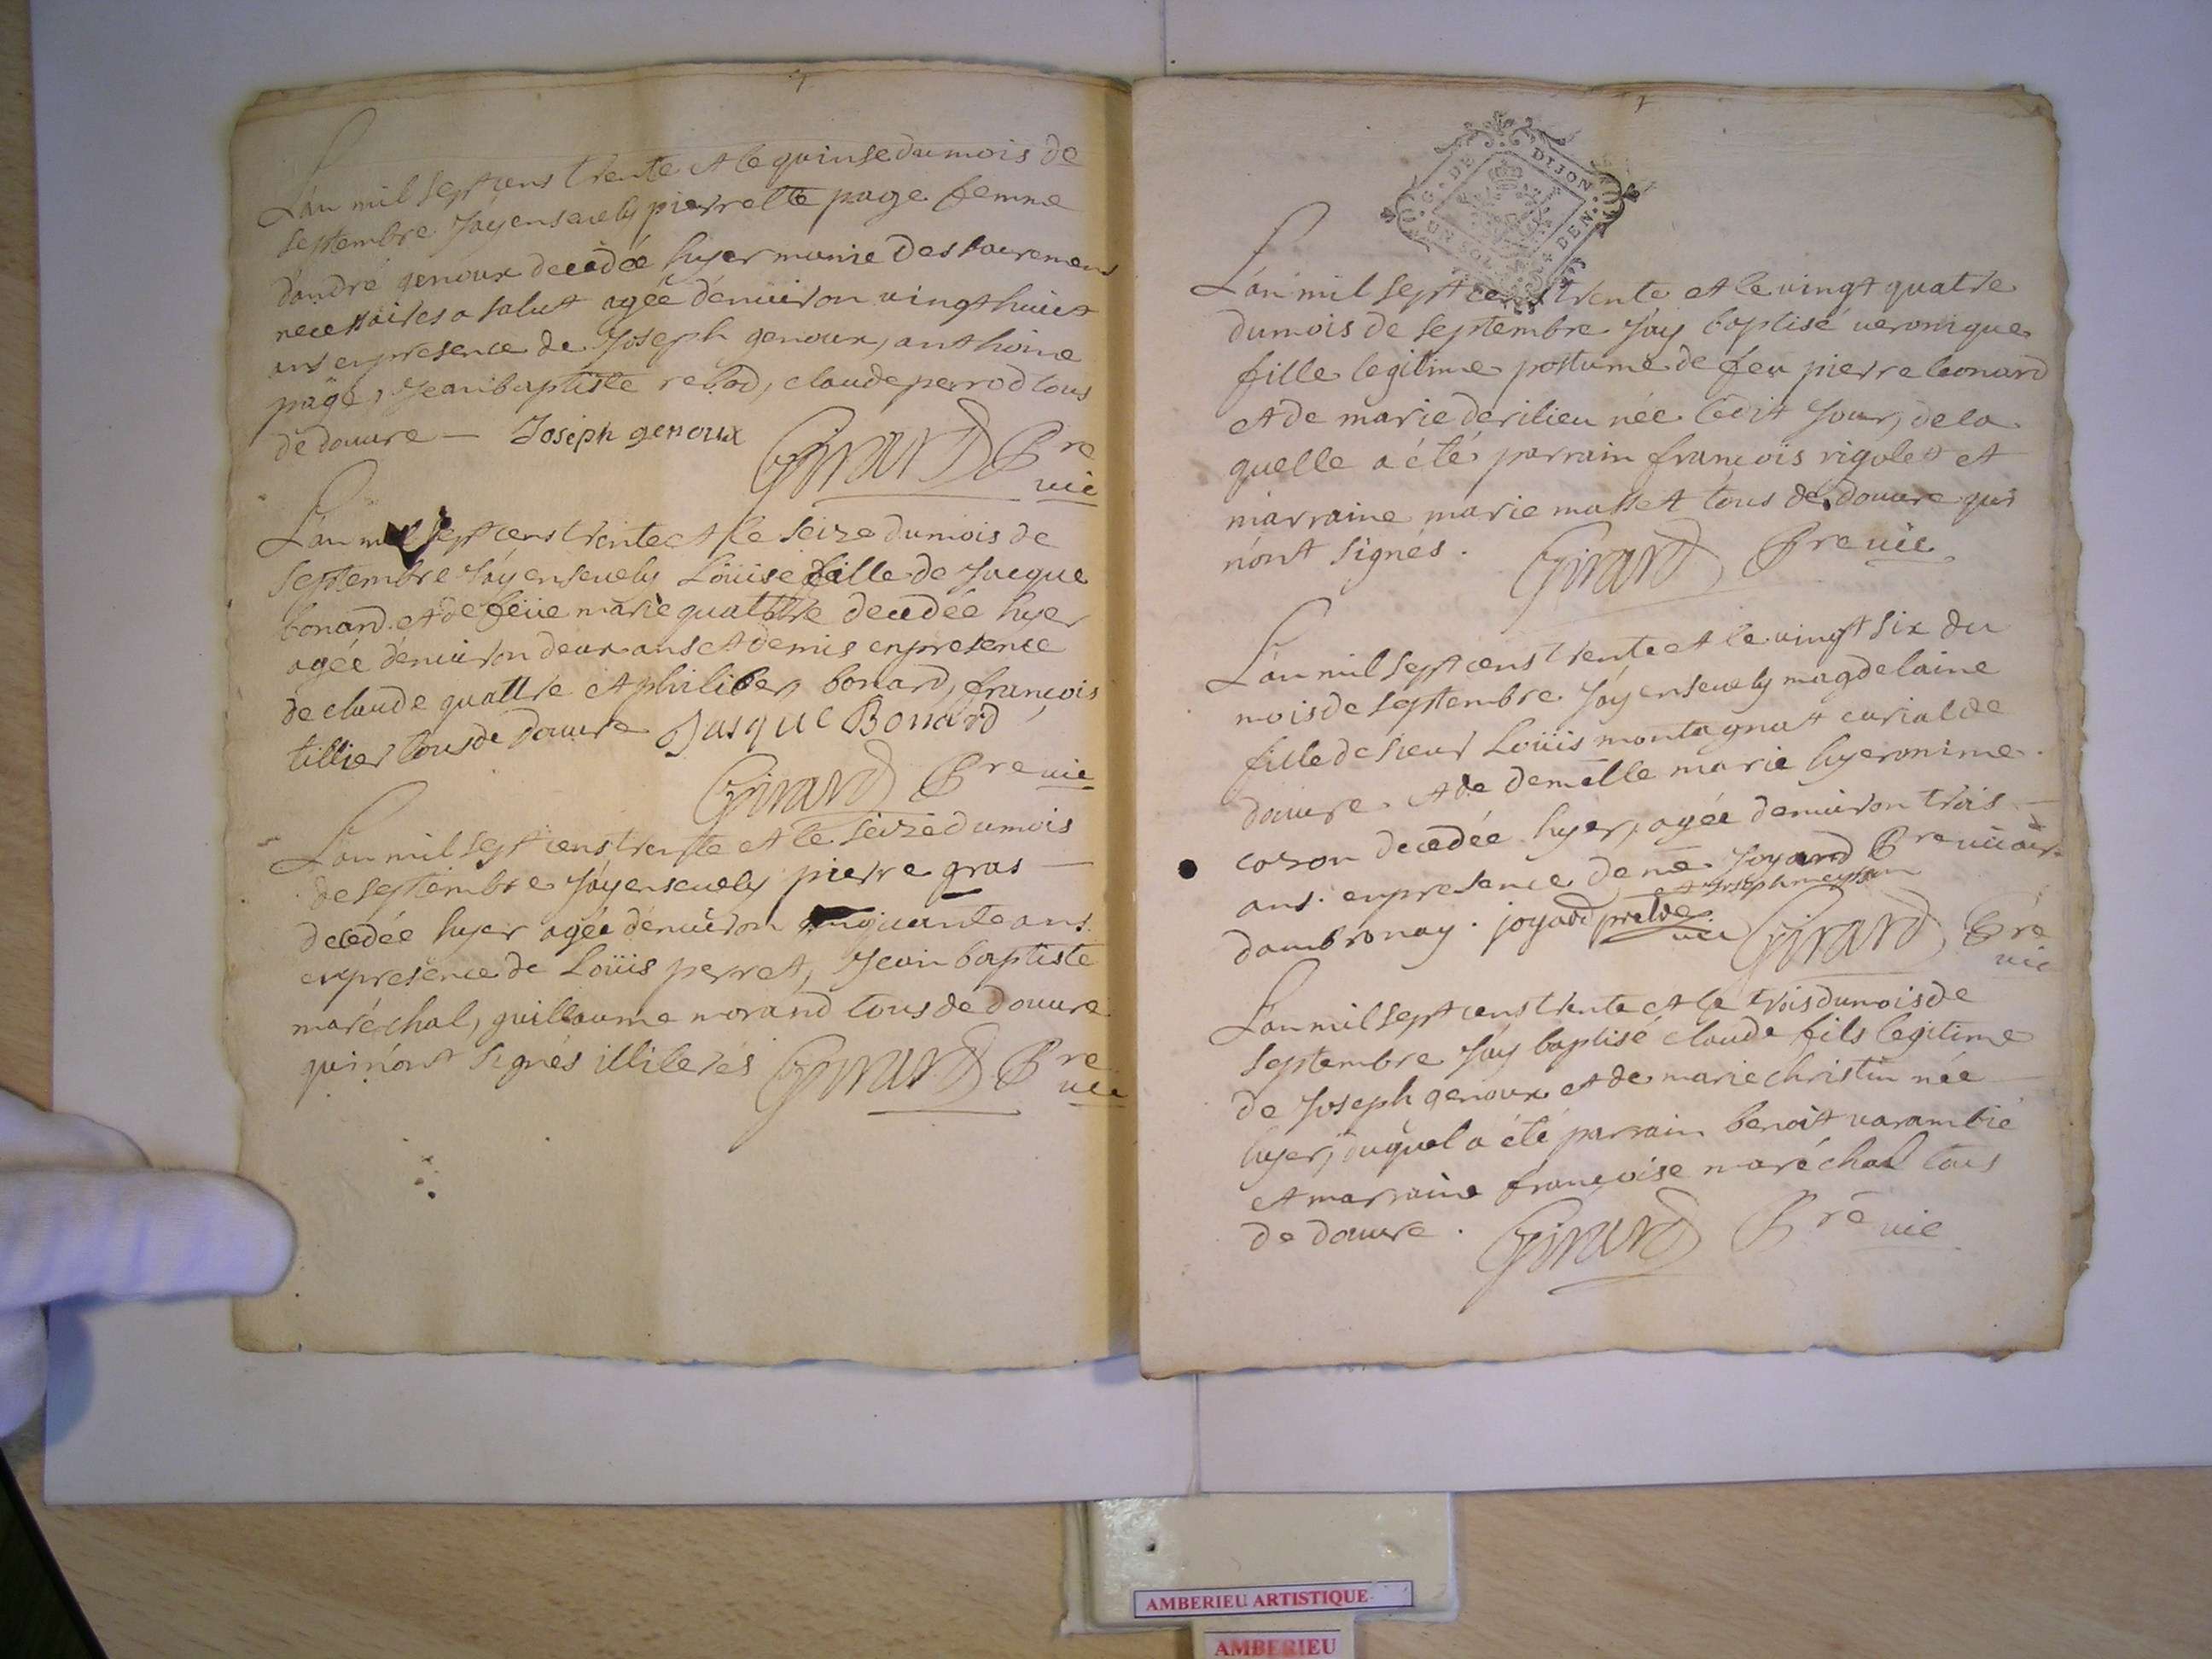 L'an mil sept cens trente et le quinse du mois de
septembre J'ay ensevely pierrette page femme
d'andré genoux decedée hyer munie des sacremens
necessaires a salut agée d'environ vingt huict
ans en presence de Joseph genoux, anthoine
page, Jean baptiste rebod, claude perrod tous
de douvre — Joseph genoux Girard Pre
vic
L'an mil sept cens trente et le seize du mois de
septembre J'ay ensevely Loüise fille de Jacque
bonard et de feüe marie quattre decedée hyer
agée d'environ deux ans et demis en presence
de claude quattre et philiber bonard, francois
tillier tous de Douvre Jasque Bonard
Girard Pre vic
L'an mil sept cens trente et le seize du mois
de septembre J'ay ensevely pierre gras —
decedée hyer agée d'environ cinquante ans
en presence de Loüis perret, Jean baptiste
maréchal, guillaume morand tous de douvre
qui n'ont signés illiterés Girard Pre
vic
G. DE DIJON
UN SOL DEN.
L'an mil sept cens trente et le vingt quatre
du mois de septembre J'ay baptisé veronique
fille legitime postume de feu pierre bonard
et de marie derilieu née ledit jour, de la
quelle a été parrain francois rigolet et
marraine marie masset tous de douvre qui
n'ont signés. Girard Pre vic
L'an mil sept cens trente et le vingt six du
mois de septembre J'ay ensevely magdelaine
fille de sieur Loüis montagnat curial de
douvre et de demelle marie hyeronime
cozon decedée hyer, agée d'environ trois —
ans. en presence de me Joyard Pre vicair
et Joseph
d'ambronay. joyard pretre vic Girard Pre
vic
L'an mil sept cens trente et le trois du mois de
septembre J'ay baptisé claude fils legitime
de Joseph genoux et de marie christin née —
hyer, duquel a été parrain benoit varambié
et marraine francoise maréchal tous
de douvre. Girard Pre vic
AMBERIEU ARTISTIQUE
AMBERIEU